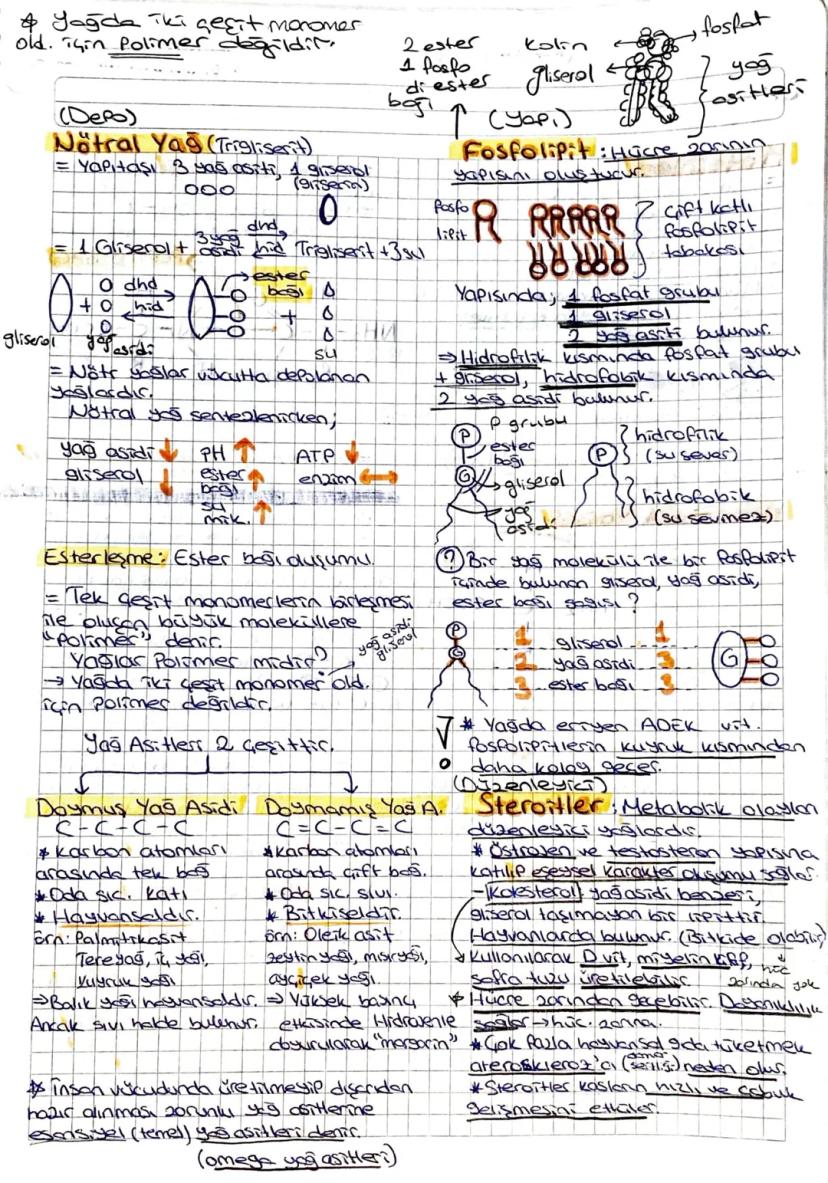 * Yağda iki çeşit monomer
old. için Polimer değildir.
2 ester
1 fosfo
di ester
bağı
kolin
gliserol
fosfat
yağ
asitleri
(Depo)
Nötral Yağ (Trigliserit)
= Yapıtaşı 3 yağ asiti, 1 gliserol
(gliserin)
= 1 Gliserol + 3 yağ asidi dhd hid Trigliserit + 3 su
dhd
hid
ester
bağı
+
+
gliserol
yağ
asidi
su
= Nötr yağlar vücutta depolanan
yağlardır.
Nötral yağ sentezlenirken;
yağ asidi ↓ PH ↑ ATP ↓
gliserol ↓ ester bağı ↑ enzim ↔
su
mik. ↑
Esterleşme: Ester bağı oluşumu.
= Tek çeşit monomerlerin birleşmesi
ile oluşan büyük moleküllere
"Polimer" denir.
Yağlar Polimer midir?
yağ asidi
gliserol
→ Yağda iki çeşit monomer old.
için Polimer değildir.
Yağ Asitleri 2 çeşittir.
Doymuş Yağ Asidi
C-C-C-C
* Karbon atomları
arasında tek bağ
* Oda sıc. katı
* Hayvansaldır.
örn: Palmitik asit
Tereyağ, iç yağı,
kuyruk yağı
⇒ Balık yağı hayvansaldır.
Ancak sıvı halde bulunur.
Doymamış Yağ A.
C=C-C=C
* Karbon atomları
arasında çift bağ.
* Oda sıc. sıvı.
* Bitkiseldir.
örn: Oleik asit
zeytin yağı, mısır yağı,
ayçiçek yağı.
⇒ Yüksek basınç
etkisinde Hidrojenle
doyurularak "margarin"
* İnsan vücudunda üretilmeyip dışarıdan
hazır alınması zorunlu yağ asitlerine
esansiyel (temel) yağ asitleri denir.
(omega yağ asitleri)
(Yapı)
Fosfolipit: Hücre zarının
yapısını oluşturur.
fosfo
lipit
çift katlı
fosfolipit
tabakası
Yapısında; 1 fosfat grubu
1 gliserol
2 yağ asiti bulunur.
⇒ Hidrofilik kısmında fosfat grubu
+ gliserol, hidrofobik kısmında
2 yağ asidi bulunur.
P
P grubu
ester
bağı
G
gliserol
yağ
asidi
P
hidrofilik
(su sever)
hidrofobik
(su sevmez)
? Bir yağ molekülü ile bir fosfolipit
içinde bulunan gliserol, yağ asidi,
ester bağı sayısı?
P
G
1 gliserol 1
2 yağ asidi 3
3 ester bağı 3
G
! * Yağda eriyen ADEK vit.
fosfolipitlerin kuyruk kısmından
daha kolay geçer.
(Düzenleyici)
Steroitler: Metabolik olayları
düzenleyici yağlardır.
* Östrojen ve testosteron yapısına
katılıp eşeysel karakter oluşumu sağlar.
- Kolesterol yağ asidi benzeri,
gliserol taşımayan bir lipittir.
Hayvanlarda bulunur. (Bitkide olabilir)
Kullanılarak D vit, miyelin kılıf,
hüc
zarında yok
safra tuzu üretilebilir.
* Hücre zarından geçebilir. Dayanıklılık
sağlar → hüc. zarına.
* Çok fazla hayvansal gıda tüketmek
ateroskleroz'a (damar sertliği) neden olur.
* Steroitler kasların hızlı ve çabuk
gelişmesini etkiler.